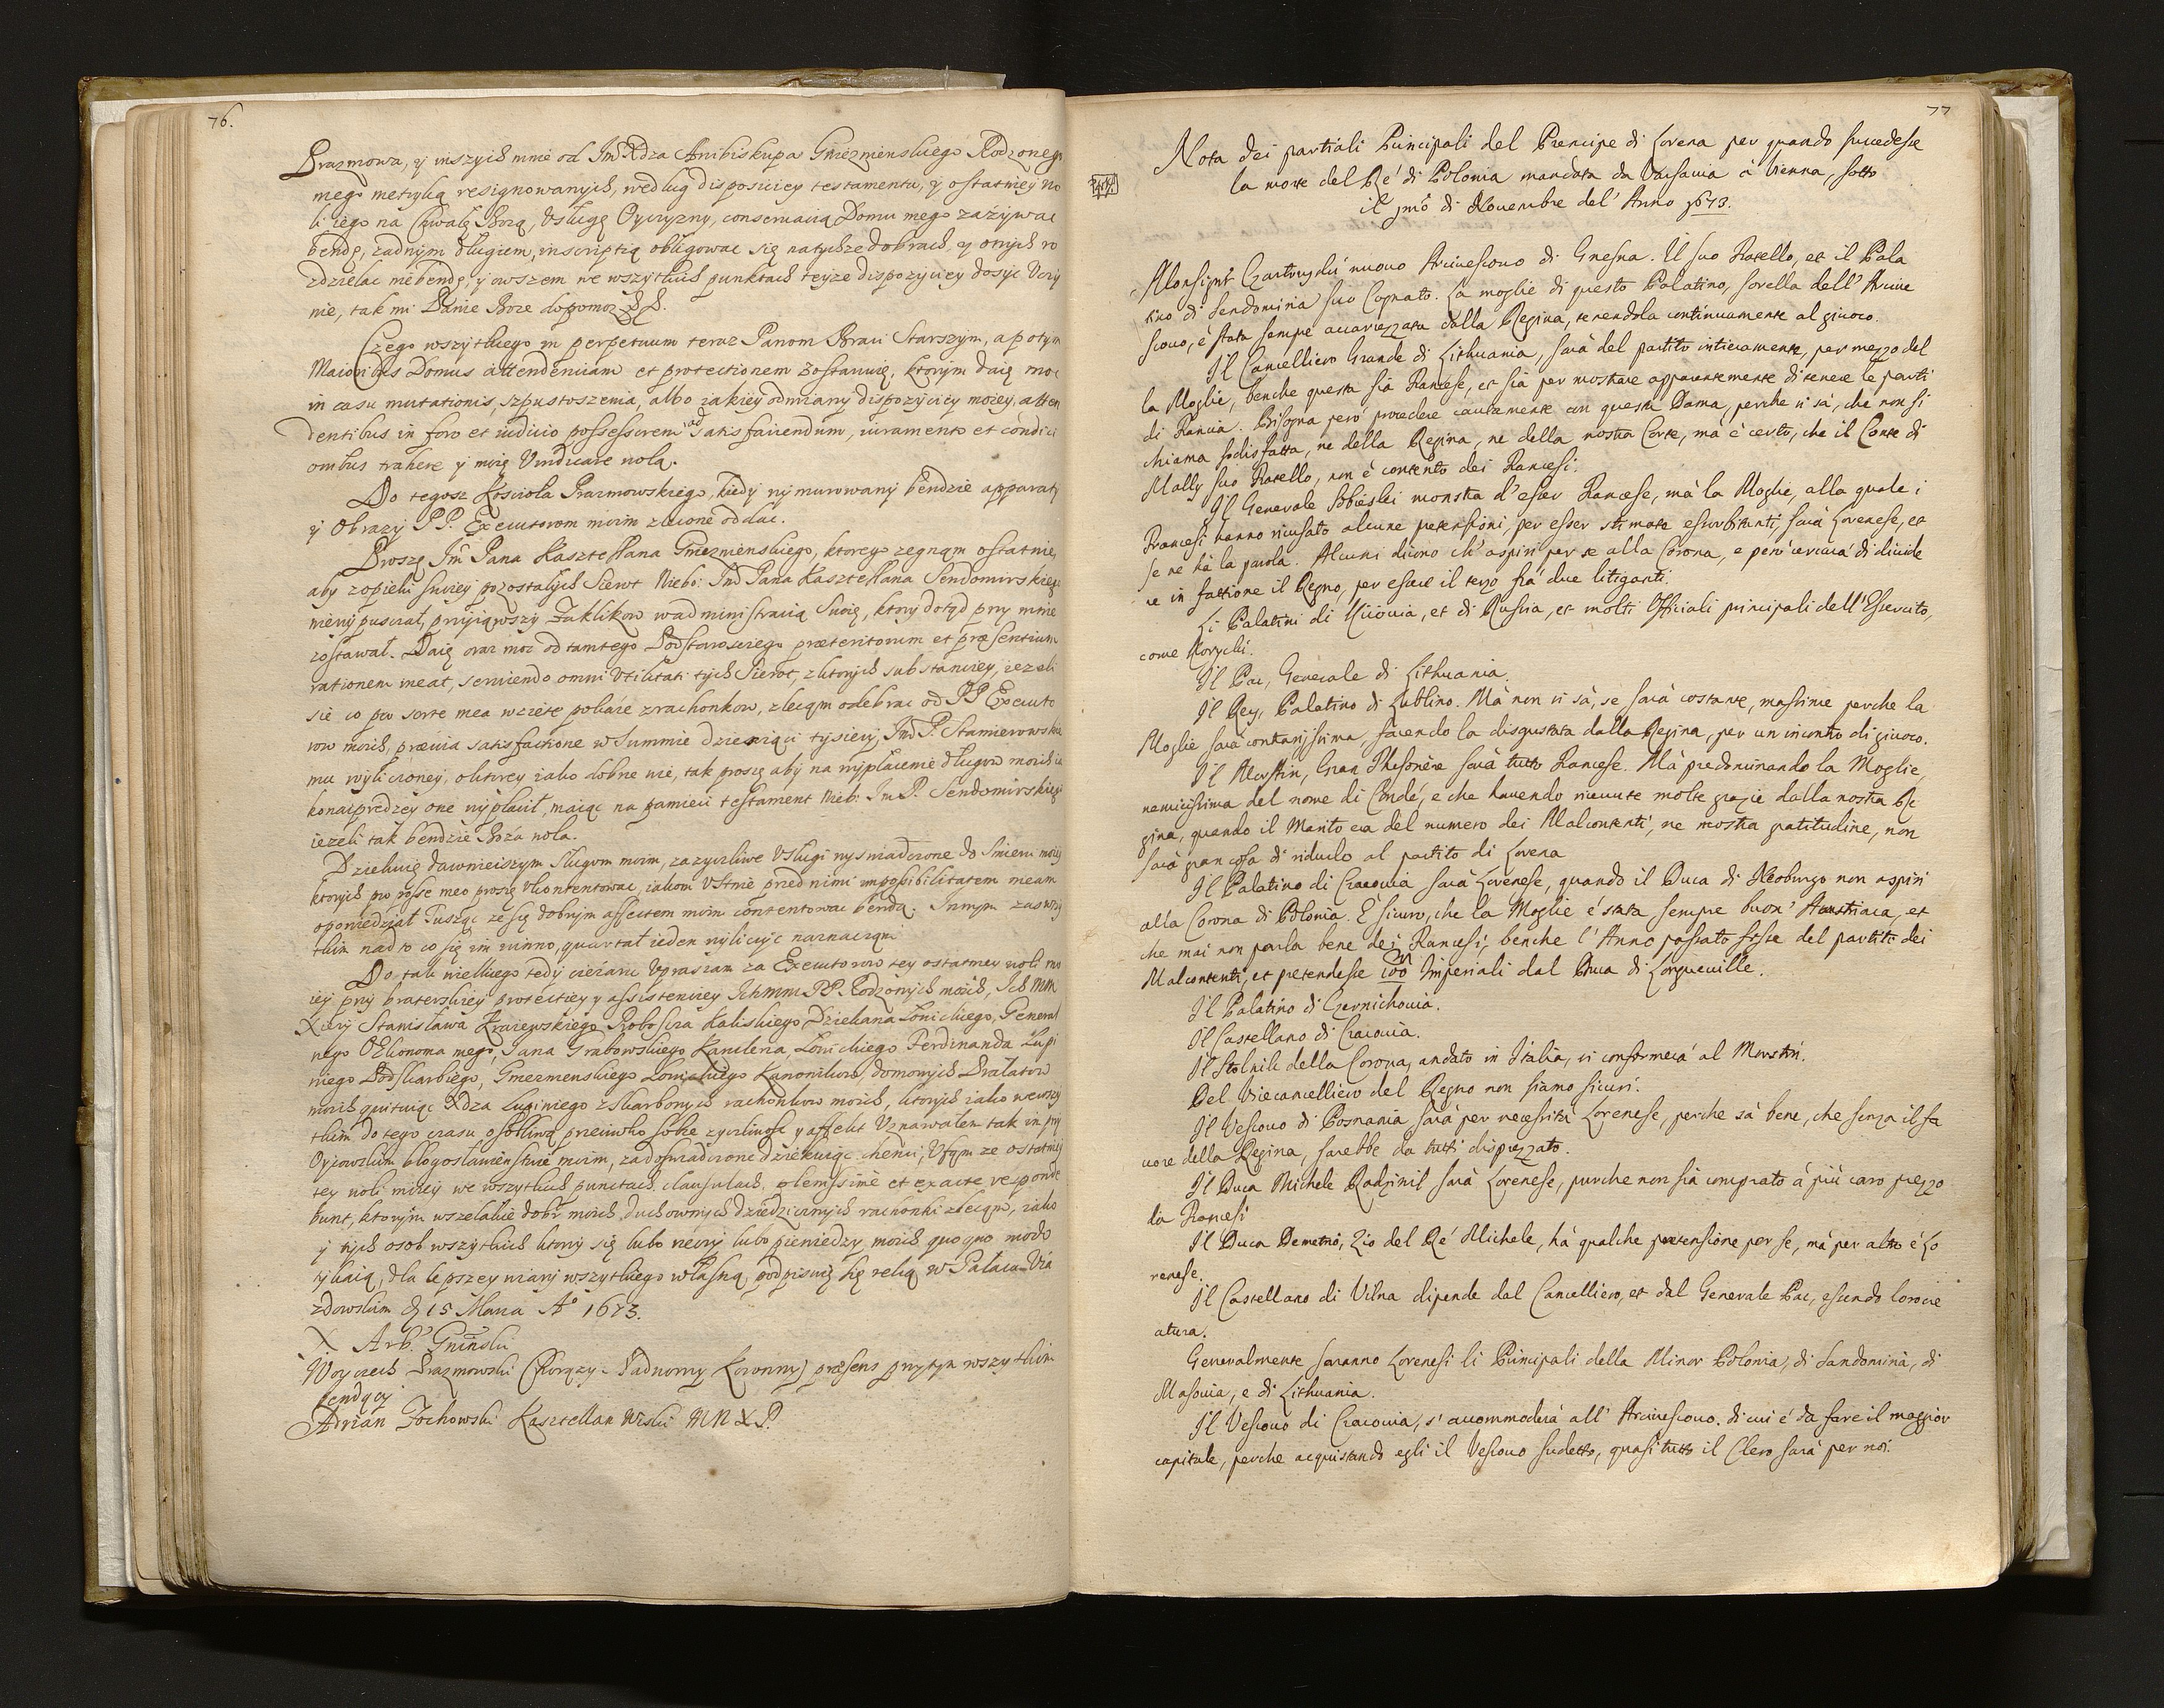 76.
Prazmowa, y inszych mnie od Im Xdza Arcibiskupa Gnieznienskiego Rodzonego
mego metryką resignowanych, według disposiciey testamentu, y ostatniey wo
li iego na Chwałę Bozą, Usługę Oyczyzny, conseruacią Domu mego zazywac
bendę, zadnym długiem, inscriptią obligowac się na tychze dobrach, y onych ro
zdzielac niebendę, y owszem we wszytkich punktach teyze dispozyciey dosyc Uczy
nie, tak mi Panie Boze dopomoz
Czego wszytkiego in perpetuum teraz Panom Braci Starszym, a potym
Maioribus Domus attendentiam et protectionem zostawuię, ktorym daię moc
in casu mutationis, spustoszenia, albo iakiey odmiany dispozyciey moiey, atten
dentibus in foro et iudicio possessorem ad satisfaciendum, iuramento et conditi
onibus trahere y moię Vindicare wolą.
Do tegosz Kosciola Prazmowskiego, kiedy wymurowany bendzie apparaty
y Obrazy PP. Executorom moim zlecone oddac.
Proszę Im Pana Kasztellana Gnieznienskiego, ktorego zegnam ostatnie,
aby z opieki swoiey pozostałych Sierot Niebo: Im Pana Kasztellana Sendomirskiego
niewypuscrał, przyiąwszy Zaklikow w administracią Swoię, ktory dotąd przy mnie
zostawał. Daię oraz moc od tamtego Podstarosciego praeteritorum et praesentium
rationem ineat, seruiendo omni Vtilitati tych Sierot, z ktorych substanciey, iezeli
sie co pro sorte mea wziete pokaze z rachonkow, zlecam odebrac od PP Executo
row moich, praeuia satisfactione w Summie dziesiąci tysiecy, Im P. Stamierowskie
mu wyliczoney, o ktorey iako dobrze wie, tak proszę aby na wypłacenie długow moich ia
konaypredzey one wypłacił, maiąc na pamieci testament Nieb: Im P. Sendomirskiego
iezeli tak bendzie Boza wola.
Dziekuię dawnieiszym Sługom moim, za zyczliwe Usługi wyswiadczone do Smierci moiey
ktorych pro posse meo proszę Ukontentowac, iakom Ustnie przed nimi impossibilitatem meam
opowiedział Tusząc ze się dobrym affectem moim contentowac bendą. Innym zas wszy
tkim nad to co się im winno, quartał ieden wyliczyc naznaczam
Do tak wielkiego tedy ciezaru Upraszam za Executorow tey ostatniey woli mo
iey przy braterskiey protectiey y assistenciey Ichmm PP. Rodzonych moich, Ich MM
Xiezy Stanisława Kraiewskiego Proboscza Kaliskiego Dziekana Lowickiego, General
nego OEkonoma mego, Jana Grabowskiego Kanclerza, Lowickiego Ferdinanda Lupi
niego Podskarbiego, Gnieznienskiego Lowickiego Kanonikow, domowych Prałatow
moich quituiąc Xdza Lupiniego z skarbowych rachonkow moich, ktorych iako we wszy
tkim do tego czasu osobliwą przeciwko sobie zyczliwosc y affekt Uznawałem tak im przy
Oyczowskim błogosławienstwie moim, za doswiadczone dziekuiąc chenci, Ufam ze ostatniey
tey woli moiey we wszytkich punctach clausulach, plenissimè et exacte responde
bunt, ktorym wszelakie dobr moich, duchownych dziedzicznych rachonki zlecam, iako
y tych osob wszytkich ktorzy się lubo rzeczy lubo pieniedzy moich quoquo modo
tykaią, dla lepszey wiary wszytkiego własną podpisuię się ręką w Pałacu Uia
zdowskim D 15 Marca Ao 1673.
X Arb. Gninski
Woyciech Prazmowski Chorązy Nadworny Koronny praesens przytym wszytkim
bendący
Adrian Zochowski Kasztellan Wiski MN X P.
77
Nota dei partiali Principali del Prencipe di Lorena per quando succedesse
la morte del Rè di Polonia mandata da Varsauia à Vienna, sotto
il pmo di Nouembre del' Anno 1673.
Monsigr Czartoryski nuouo Arciuescouo di Gnesna. Il suo Fratello, et il Pala
tino di Sendomiria suo Cognato. La moglie di questo Palatino, sorella dell' Arciue
scouo, è stata sempre accarezzata dalla Regina, tenendola continuamente al giuoco.
Il Cancelliero Grande di Lithuania, sarà del partito intieramente, per mezzo del
la Moglie, benche questa sia Francese, et sia per mostrare apparentemente di tenere le parti
di Francia. Bisogna però procedere cautamente con questa Dama, perche si sà, che non si
chiama sodisfatta, ne della Regina, ne della nostra Corte, mà è certo, che il Conte di
Mally suo Fratello, non è contento dei Francesi.
Il Generale Sobieski monstra d'esser Francese, mà la Moglie, alla quale i
Francesi hanno ricusato alcune pretensioni, per esser stimate essorbitanti, sarà Lorenese, et
se ne hà la parola. Alcuni dicono ch' aspiri per se alla Corona, e però cercarà di diuide
re in fattione il Regno, per essere il terzo frà due litiganti.
Li Palatini di Kiiouia, et di Russia, et molti Officiali principali dell' Essercito,
come Korycki.
Il Pac, Generale di Lithuania.
Il Rey, Palatino di Lublino. Mà non si sà, se sarà costante, massime perche la
Moglie sarà contrarissima, facendo la disgustata dalla Regina, per un incontro di giuoco.
Il Morstin, Gran Thesoriere sarà tutto Francese. Mà predominando la Moglie,
nemicissima del nome di Condé, e che hauendo riceuute molte grazie dalla nostra Re
gina, quando il Marito era del numero dei Malcontenti, ne mostra gratitudine, non
sarà gran cosa di ridurlo al partito di Lorena
Il Palatino di Cracouia sarà Lorenese, quando il Duca di Neoburgo non aspiri
alla Corona di Polonia. È sicuro, che la Moglie è stata sempre buon' Austriaca, et
che mai non parla bene dei Francesi, benche l' Anno passato fosse del partito dei
Malcontenti, et pretendesse 100 Imperiali dal Duca di Longueuille.
Il Palatino di Czernichouia.
Il Castellano di Cracouia.
Il Stolnik della Corona, andato in Italia, si conformerà al Morstin.
Del Vicecancelliero del Regno non siamo sicuri.
Il Vescouo di Posnania sarà per necessità Lorenese, perche sà bene, che senza il fa
uore della Regina, sarebbe da tutti disprezzato.
Il Duca Michele Radziuil sarà Lorenese, purche non sia comprato à più caro prezzo
da Francesi
Il Duca Demetrio, Zio del Rè Michele, hà qualche pretensione per se, mà per altro è Lo
renese.
Il Castellano di Vilna dipende dal Cancelliero, et dal Generale Pac, essendo loro cre
atura.
Generalmente saranno Lorenesi li Principali della Minor Polonia, di Sandomiria, di
Masouia, e di Lithuania.
Il Vescouo di Cracouia, s' accommoderà all' Arciuescouo. di cui è da fare il maggior
capitale, perche acquistando egli il Vescouo sudetto, quasi tutto il Clero sarà per noi.